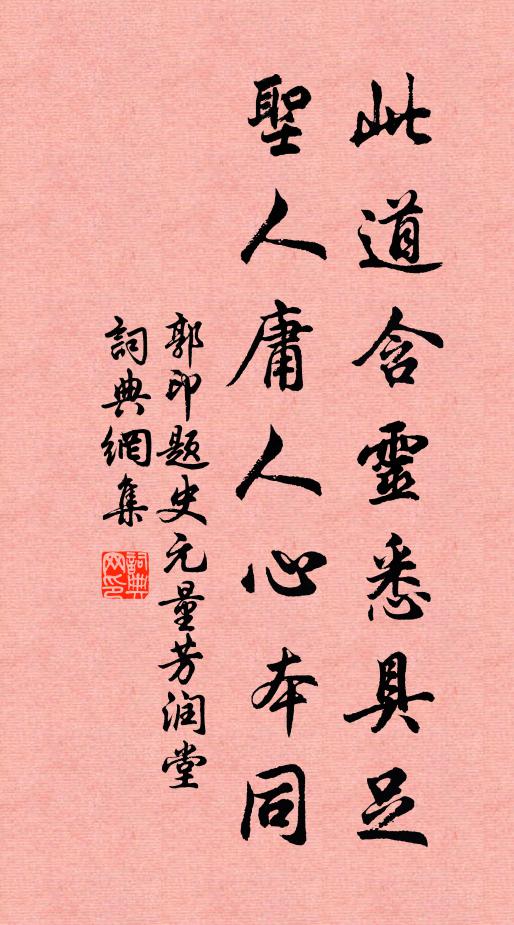 此道含靈悉具足
聖人庸人心本同
郭印题史元量芳润堂
詞典網集
詞典网印